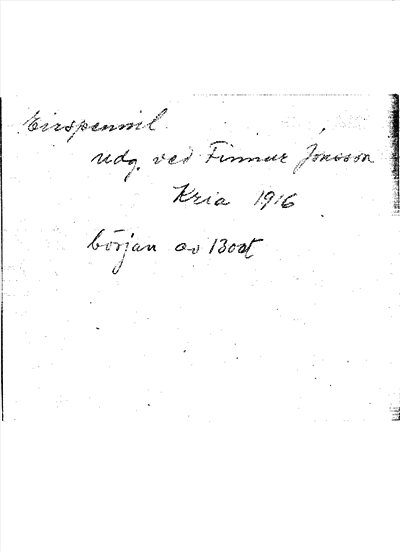 Eirspennil
udg. ved Finnur Jónsson
Kria 1916
början av 1300t